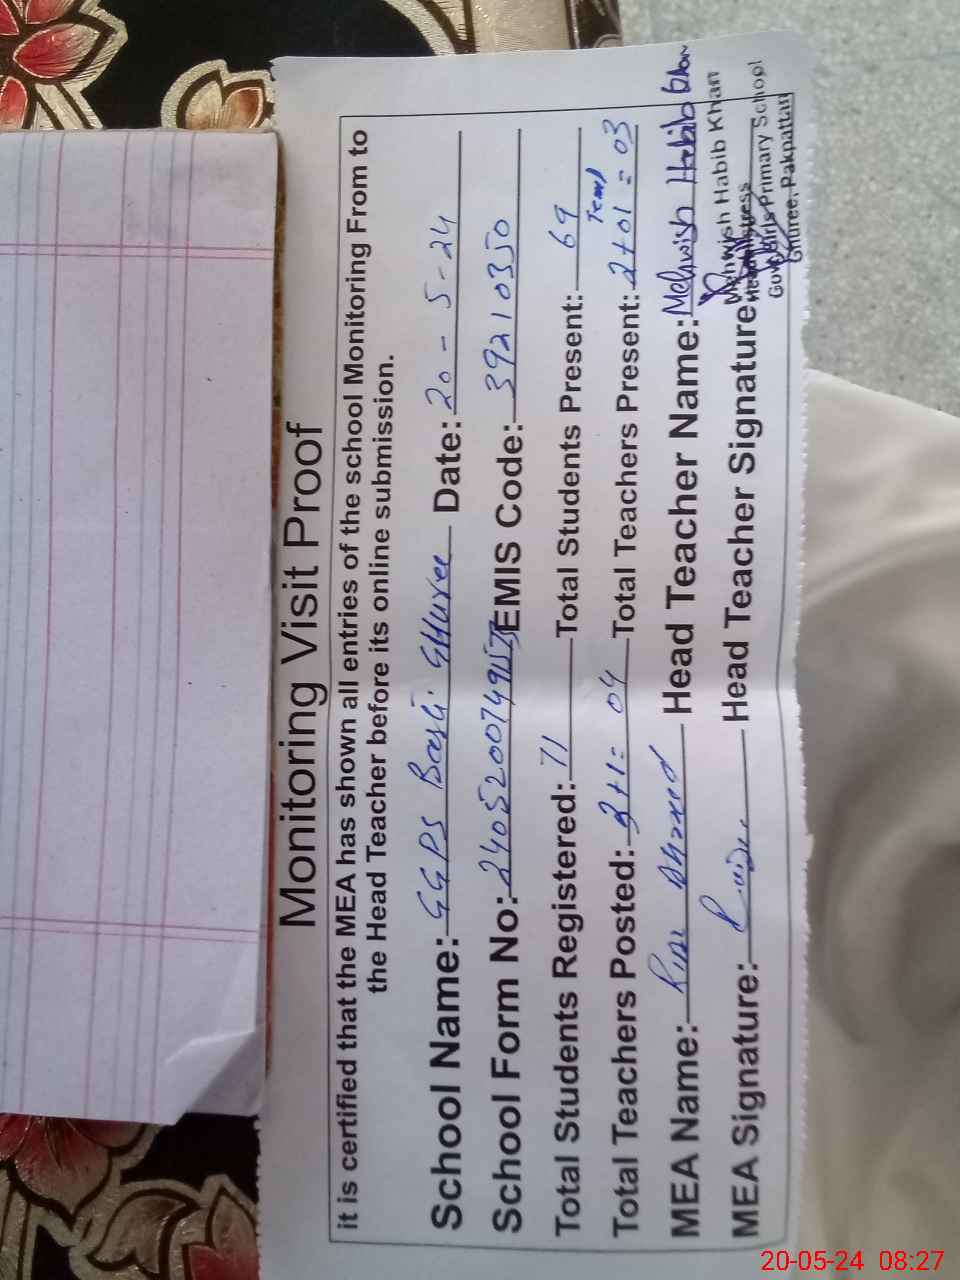 Monitoring Visit Proof
it is certified that the MEA has shown all entries of the school Monitoring From to
the Head Teacher before its online submission.
School Name: GGPS Basti Ghuree Date: 20-5-24
School Form No: 24052007491573 EMIS Code: 39210350
Total Students Registered: 71 Total Students Present: 69
Total Teachers Posted: 3+1= 04 Total Teachers Present: 2+01=03
MEA Name: Ahmed Head Teacher Name: Mehwish Habib Khan
MEA Signature: Head Teacher Signature
Mehwish Habib Khan
Headmistress
Govt. Girls Primary School
Ghuree, Pakpattan
20-05-24 08:27